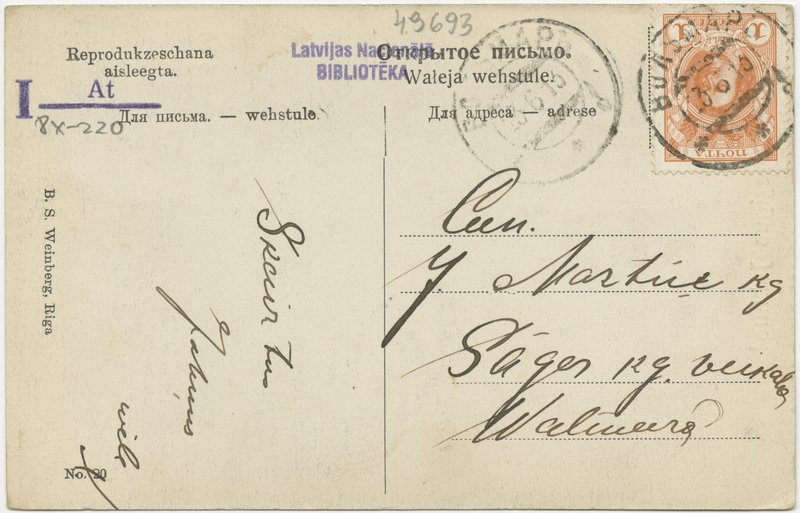 49693
Reprodukzeschana
aisleegta.
Latvijas Nacionālā
BIBLIOTĒKA
Открытое письмо.
Waleja wehstule.
I
At
8X-220
Для письма. — wehstule.
Для адреса — adrese
1 1
ПОЧТА
B. S. Weinberg, Riga
No. 20
Jahnus
wēl
Cien.
J. Martin kg
Säger kg. veikalā
Walmeerā